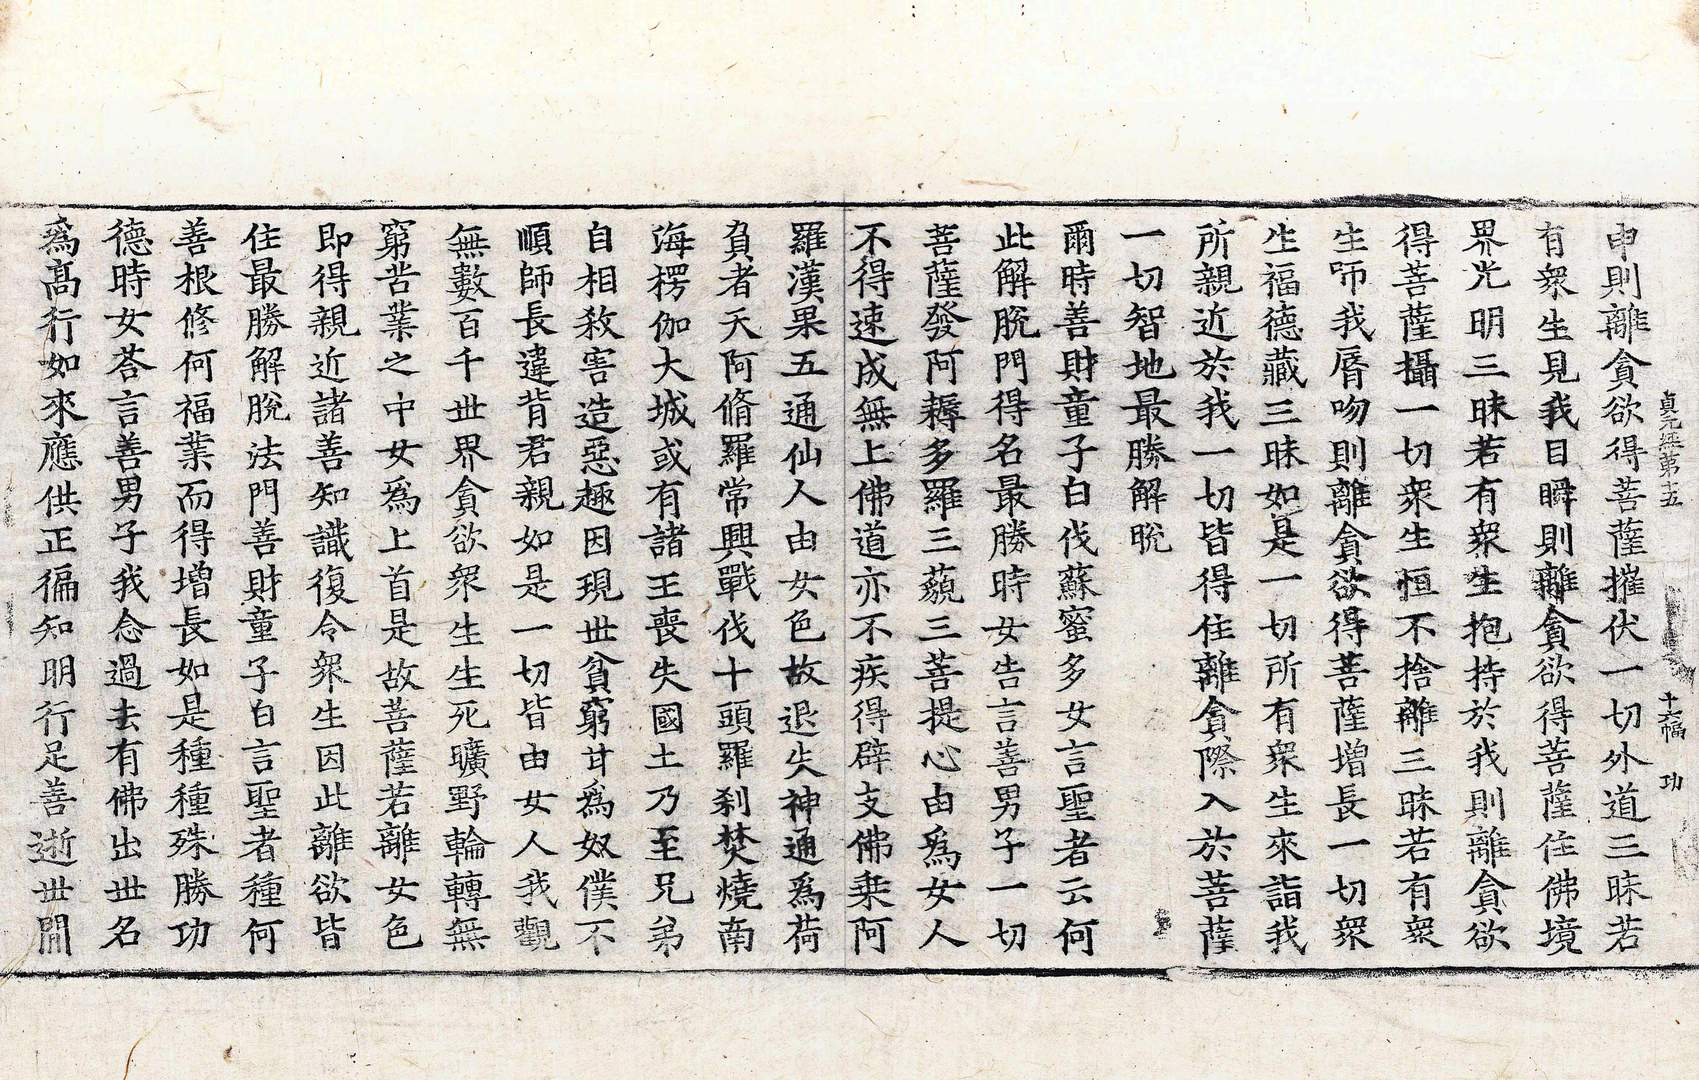 貞元經第十五 十六幅 功
申則離貪欲得菩薩摧伏一切外道三昧若
有衆生見我目瞬則離貪欲得菩薩住佛境
界光明三昧若有衆生抱持於我則離貪欲
得菩薩攝一切衆生恒不捨離三昧若有衆
生咂我脣吻則離貪欲得菩薩增長一切衆
生福德藏三昧如是一切所有衆生來詣我
所親近於我一切皆得住離貪際入於菩薩
一切智地最勝解脫
爾時善財童子白伐蘇蜜多女言聖者云何
此解脫門得名最勝時女告言善男子一切
菩薩發阿耨多羅三藐三菩提心由爲女人
不得速成無上佛道亦不疾得辟支佛乗阿
羅漢果五通仙人由女色故退失神通爲荷
負者天阿脩羅常興戰伐十頭羅刹焚燒南
海楞伽大城或有諸王喪失國土乃至兄弟
自相殺害造惡趣因現世貧窮甘爲奴僕不
順師長違背君親如是一切皆由女人我觀
無數百千世界貪欲衆生生死曠野輪轉無
窮苦業之中女爲上首是故菩薩若離女色
即得親近諸善知識復令衆生因此離欲皆
住最勝解脫法門善財童子白言聖者種何
善根修何福業而得增長如是種種殊勝功
德時女荅言善男子我念過去有佛出世名
爲高行如來應供正徧知明行足善逝世間